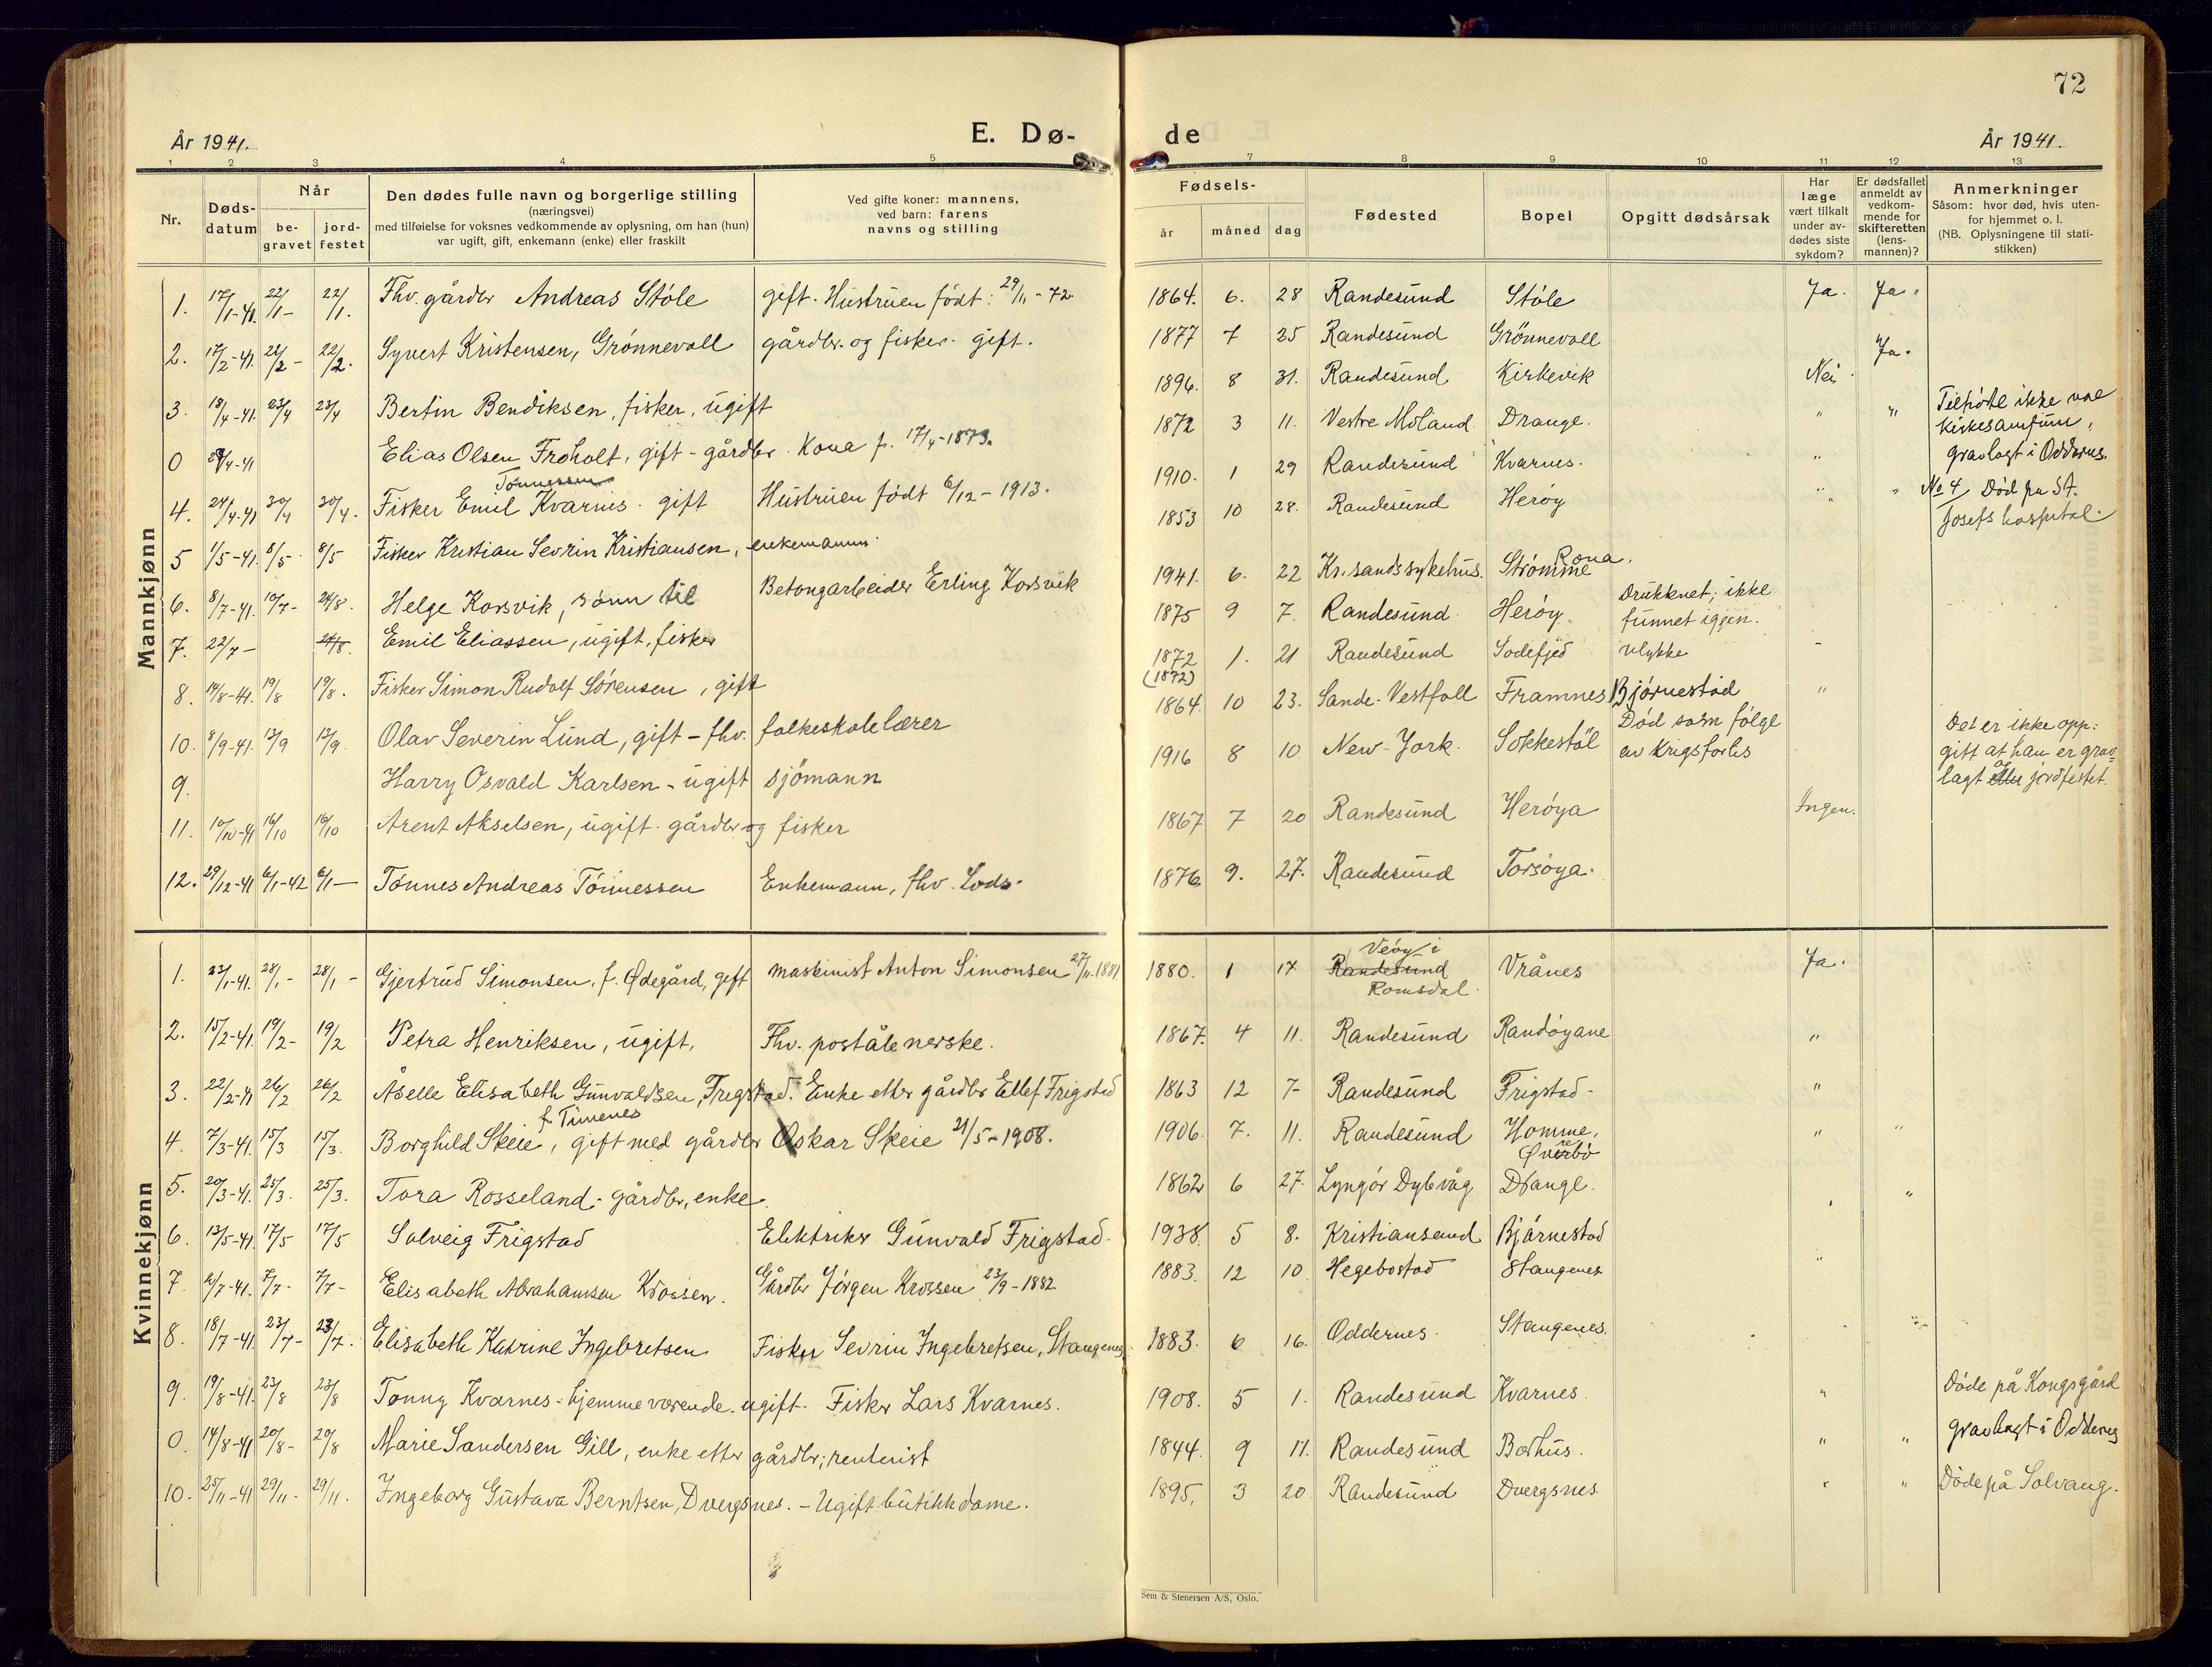 72
År 1941.
E. Dø-
de
År 1941.
1 2 3 4 5 7 8 9 10 11 12 13
Nr.
Døds-
datum
Når
be-
gravet
jord-
festet
Den dødes fulle navn og borgerlige stilling
(næringsvei)
med tilføielse for voksnes vedkommende av oplysning, om han (hun)
var ugift, gift, enkemann (enke) eller fraskilt
Ved gifte koner: mannens,
ved barn: farens
navns og stilling
Fødsels-
år måned dag
Fødested
Bopel
Opgitt dødsårsak
Har
læge
vært tilkalt
under av-
dødes siste
sykdom?
Er dødsfallet
anmeldt av
vedkom-
mende for
skifteretten
(lens-
mannen)?
Anmerkninger
Såsom: hvor død, hvis uten-
for hjemmet o. l.
(NB. Oplysningene til stati-
stikken)
Mannkjønn
1. 17/1-41. 22/1- 22/1. Fhv. gårdbr Andreas Stóle gift. Hustruen født: 29/11-72 1864. 6. 28 Randesund Stóle Ja. Ja.
2. 17/2-41. 22/2- 22/2. Syvert Kristensen, Grønnevoll gårdbr. og fisker. gift. 1877 7 25 Randesund Grönnevoll Ja.
3. 18/4-41. 23/4 23/4 Bertin Bendiksen, fisker, ugift 1896. 8 31. Randesund Kirkevik Nei.
0 29/4-41 Elias Olsen Froholt, gift - gårdbr. Kona f. 17/4-1873. 1872 3 11. Vestre Moland. Drange. " " Tilhörte ikke noe
kirkesamfunn,
gravlagt i Oddernes.
Tønnessen
4. 24/4-41 30/4 30/4. Fisker Emil Kvarnes. gift Hustruen født 6/12-1913. 1910. 1 29 Randesund Kvarnes. " No 4 Død på St.
Josefs hospital.
5 1/5-41. 8/5- 8/5 Fisker Kristian Sevrin Kristiansen, enkemann. 1853 10 28. Randesund Herøy " "
6. 8/7-41. 10/7- 24/8. Helge Korsvik, sønn til Betongarbeider Erling Korsvik 1941. 6. 22 Kr.sands sykehus. Strømme Rona.
7. 22/7- 24/8. Emil Eliassen, ugift, fisker 1875 9 7. Randesund. Herøy. Druknet, ikke
funnet iggjen.
8. 14/8-41. 19/8 19/8. Fisker Simon Rudolf Sørensen, gift 1872 1. 21 Randesund Sodefjed ulykke -
(1872)
10. 8/9-41. 13/9 13/9. Olav Severin Lund, gift - fhv. folkeskolelærer 1864. 10 23. Sande-Vestfoll Framnes Bjørnestad "
9. Harry Osvald Karlsen - ugift sjömann 1916 8 10 New-York. Sokkestöl Död som følge
av krigsforlis Det er ikke opp:
gitt at han er grav=
lagt eller og jordfestet.
11. 10/10-41 16/10 16/10 Arent Akselsen, ugift. gårdbr og fisker 1867 7 20 Randesund Herøya Ingen.
12. 29/12-41 6/1-42 6/1- Tønnes Andreas Tønnessen Enkemann, fhv. Lods. 1876 9. 27. Randesund Torsøya.
Kvinnekjønn
1. 23/1-41. 28/1- 28/1- Gjertrud Simonsen, f. Ødegård, gift maskinist Anton Simonsen 27/11.1881 1880. 1 17 Randesund Veøy i
Romsdal. Vrånes Ja.
2. 15/2-41. 19/2- 19/2 Petra Henriksen, ugift, Fhv. poståbnerske. 1867. 4 11. Randesund Randøyane "
3. 22/2-41 26/2 26/2 Åselle Elisabeth Gunvaldsen, Fregstad. Enke etter gårdbr Ellef Frigstad 1863 12 7- Randesund Frigstad- "
f. Timenes
4. 7/3-41. 15/3 15/3. Borghild Skeie, gift med gårdbr Oskar Skeie 21/5-1908. 1906. 7. 11. Randesund Homme,
Øvrebø " "
5. 20/3-41. 25/3. 25/3. Tora Rosseland- gårdbr, enke. 1862 6 27. Lyngör Dybvåg Drange. "
6. 13/5-41. 17/5 17/5 Solveig Frigstad Elektriker Gunvald Frigstad. 1938. 5 8. Kristiansand Bjørnestad
7. 2/7-41. 7/7- 7/7- Elisabeth Abrahamsen Krossen. Gårdbr Jörgen Krossen 23/9-1882 1883. 12 10 Hegebostad Stangenes "
8. 18/7-41. 23/7- 23/7. Elisabeth Katrine Ingebretsen Fisker Sevrin Ingebretsen, Stangenes. 1883. 6 16. Oddernes. Stangenes.
9. 19/8-41. 23/8 23/8 Tonny Kvarnes - hjemmeværende. ugift. Fisker Lars Kvarnes. 1908. 5 1. Randesund Kvarnes. " Döde på Kongsgård
0. 14/8-41 20/8- 20/8 Marie Sandersen Gill, enke etter gårdbr, rentenist 1844. 9 17. Randesund Borhus. " " gravlagt i Oddernes
10. 25/11-41 29/11. 29/11. Ingeborg Gustava Berntsen, Dvergsnes. - Ugift butikkdame. 1895, 3 20. Randesund Dvergsnes. " " Döde på Solvang.
Sem & Stenersen A/S, Oslo.